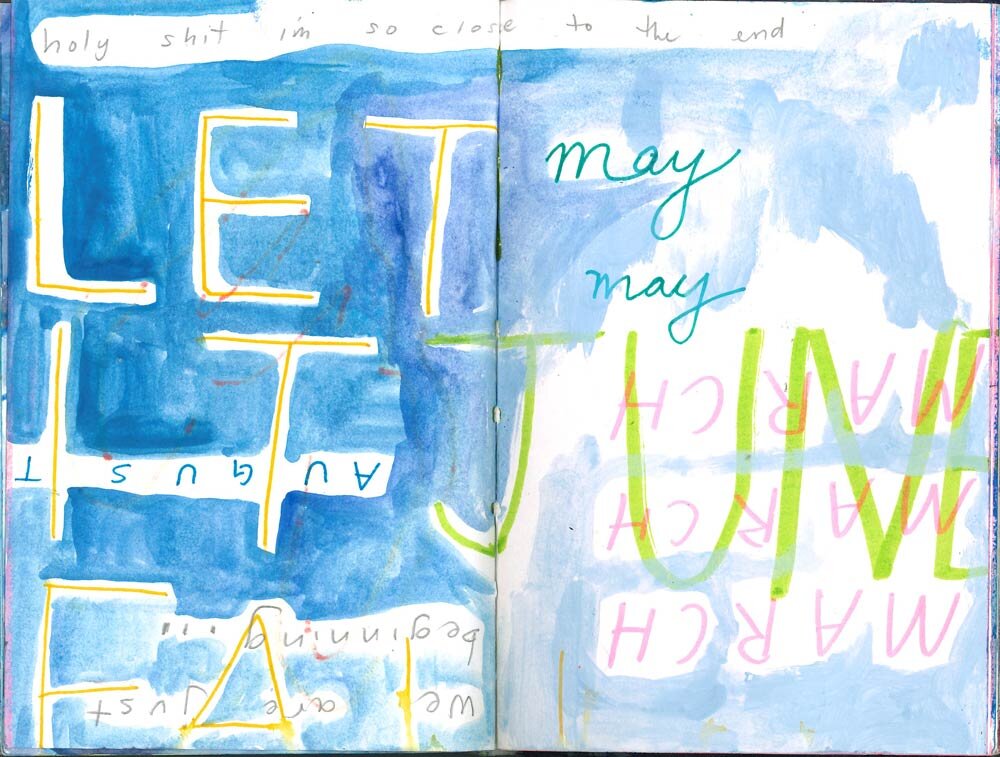 holy shit i'm so close to the end
LET
may
may
IT
JUNE
AUGUST
FALL
we are just
beginning...
MARCH
MARCH
MARCH